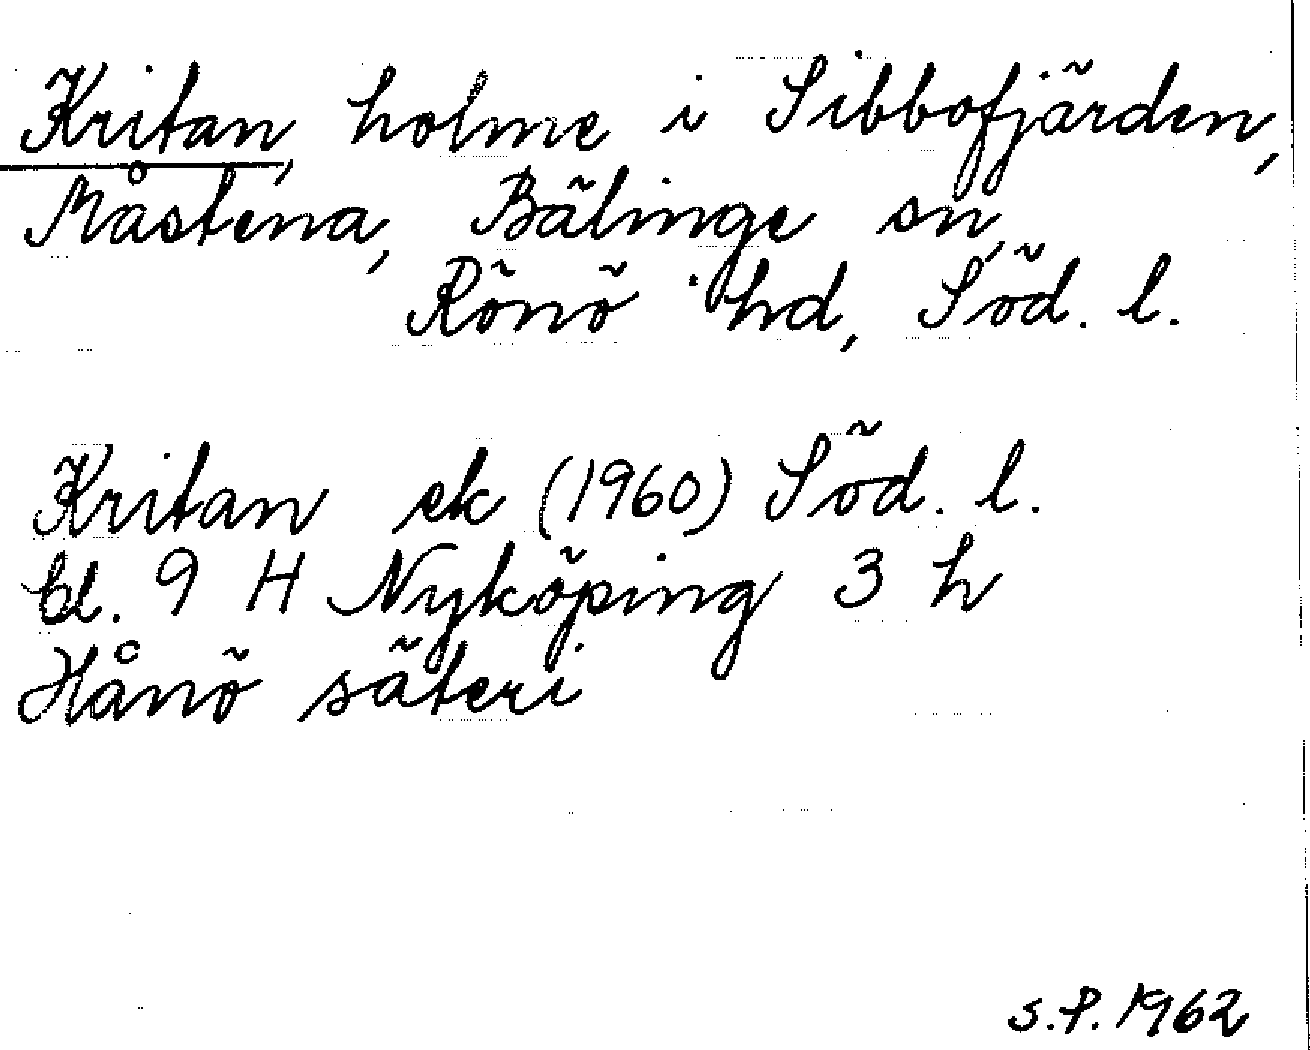 Kritan, holme i Sibbofjärden,
Måstena, Bälinge sn,
Rönö hd, Söd. l.
Kritan ek (1960) Söd. l.
bl. 9 H Nyköping 3 h
Hånö säteri
S.P. 1962